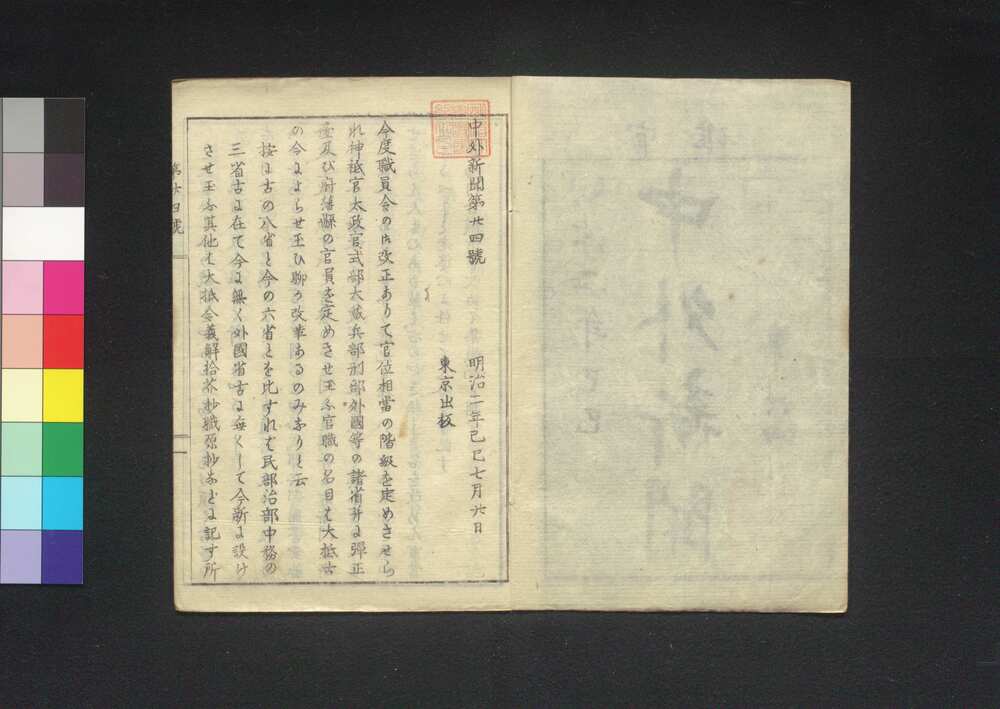 中外新聞第廿四號
明治二年己巳七月六日
東京出板
今度職員令の御改正ありて官位相當の階級を定めさせら
れ神祇官太政官式部大藏兵部刑部外國等の諸省并に彈正
臺及び府藩縣の官員を定めさせ玉ふ官職の名目は大抵古
の令によらせ玉ひ聊か改革あるのみなりと云
按に古の八省と今の六省とを比すれば民部治部中務の
三省古に在て今に無く外國省古に無くして今新に設け
させ玉ふ其他は大抵令義解拾芥抄職原抄などに記す所
第廿四號